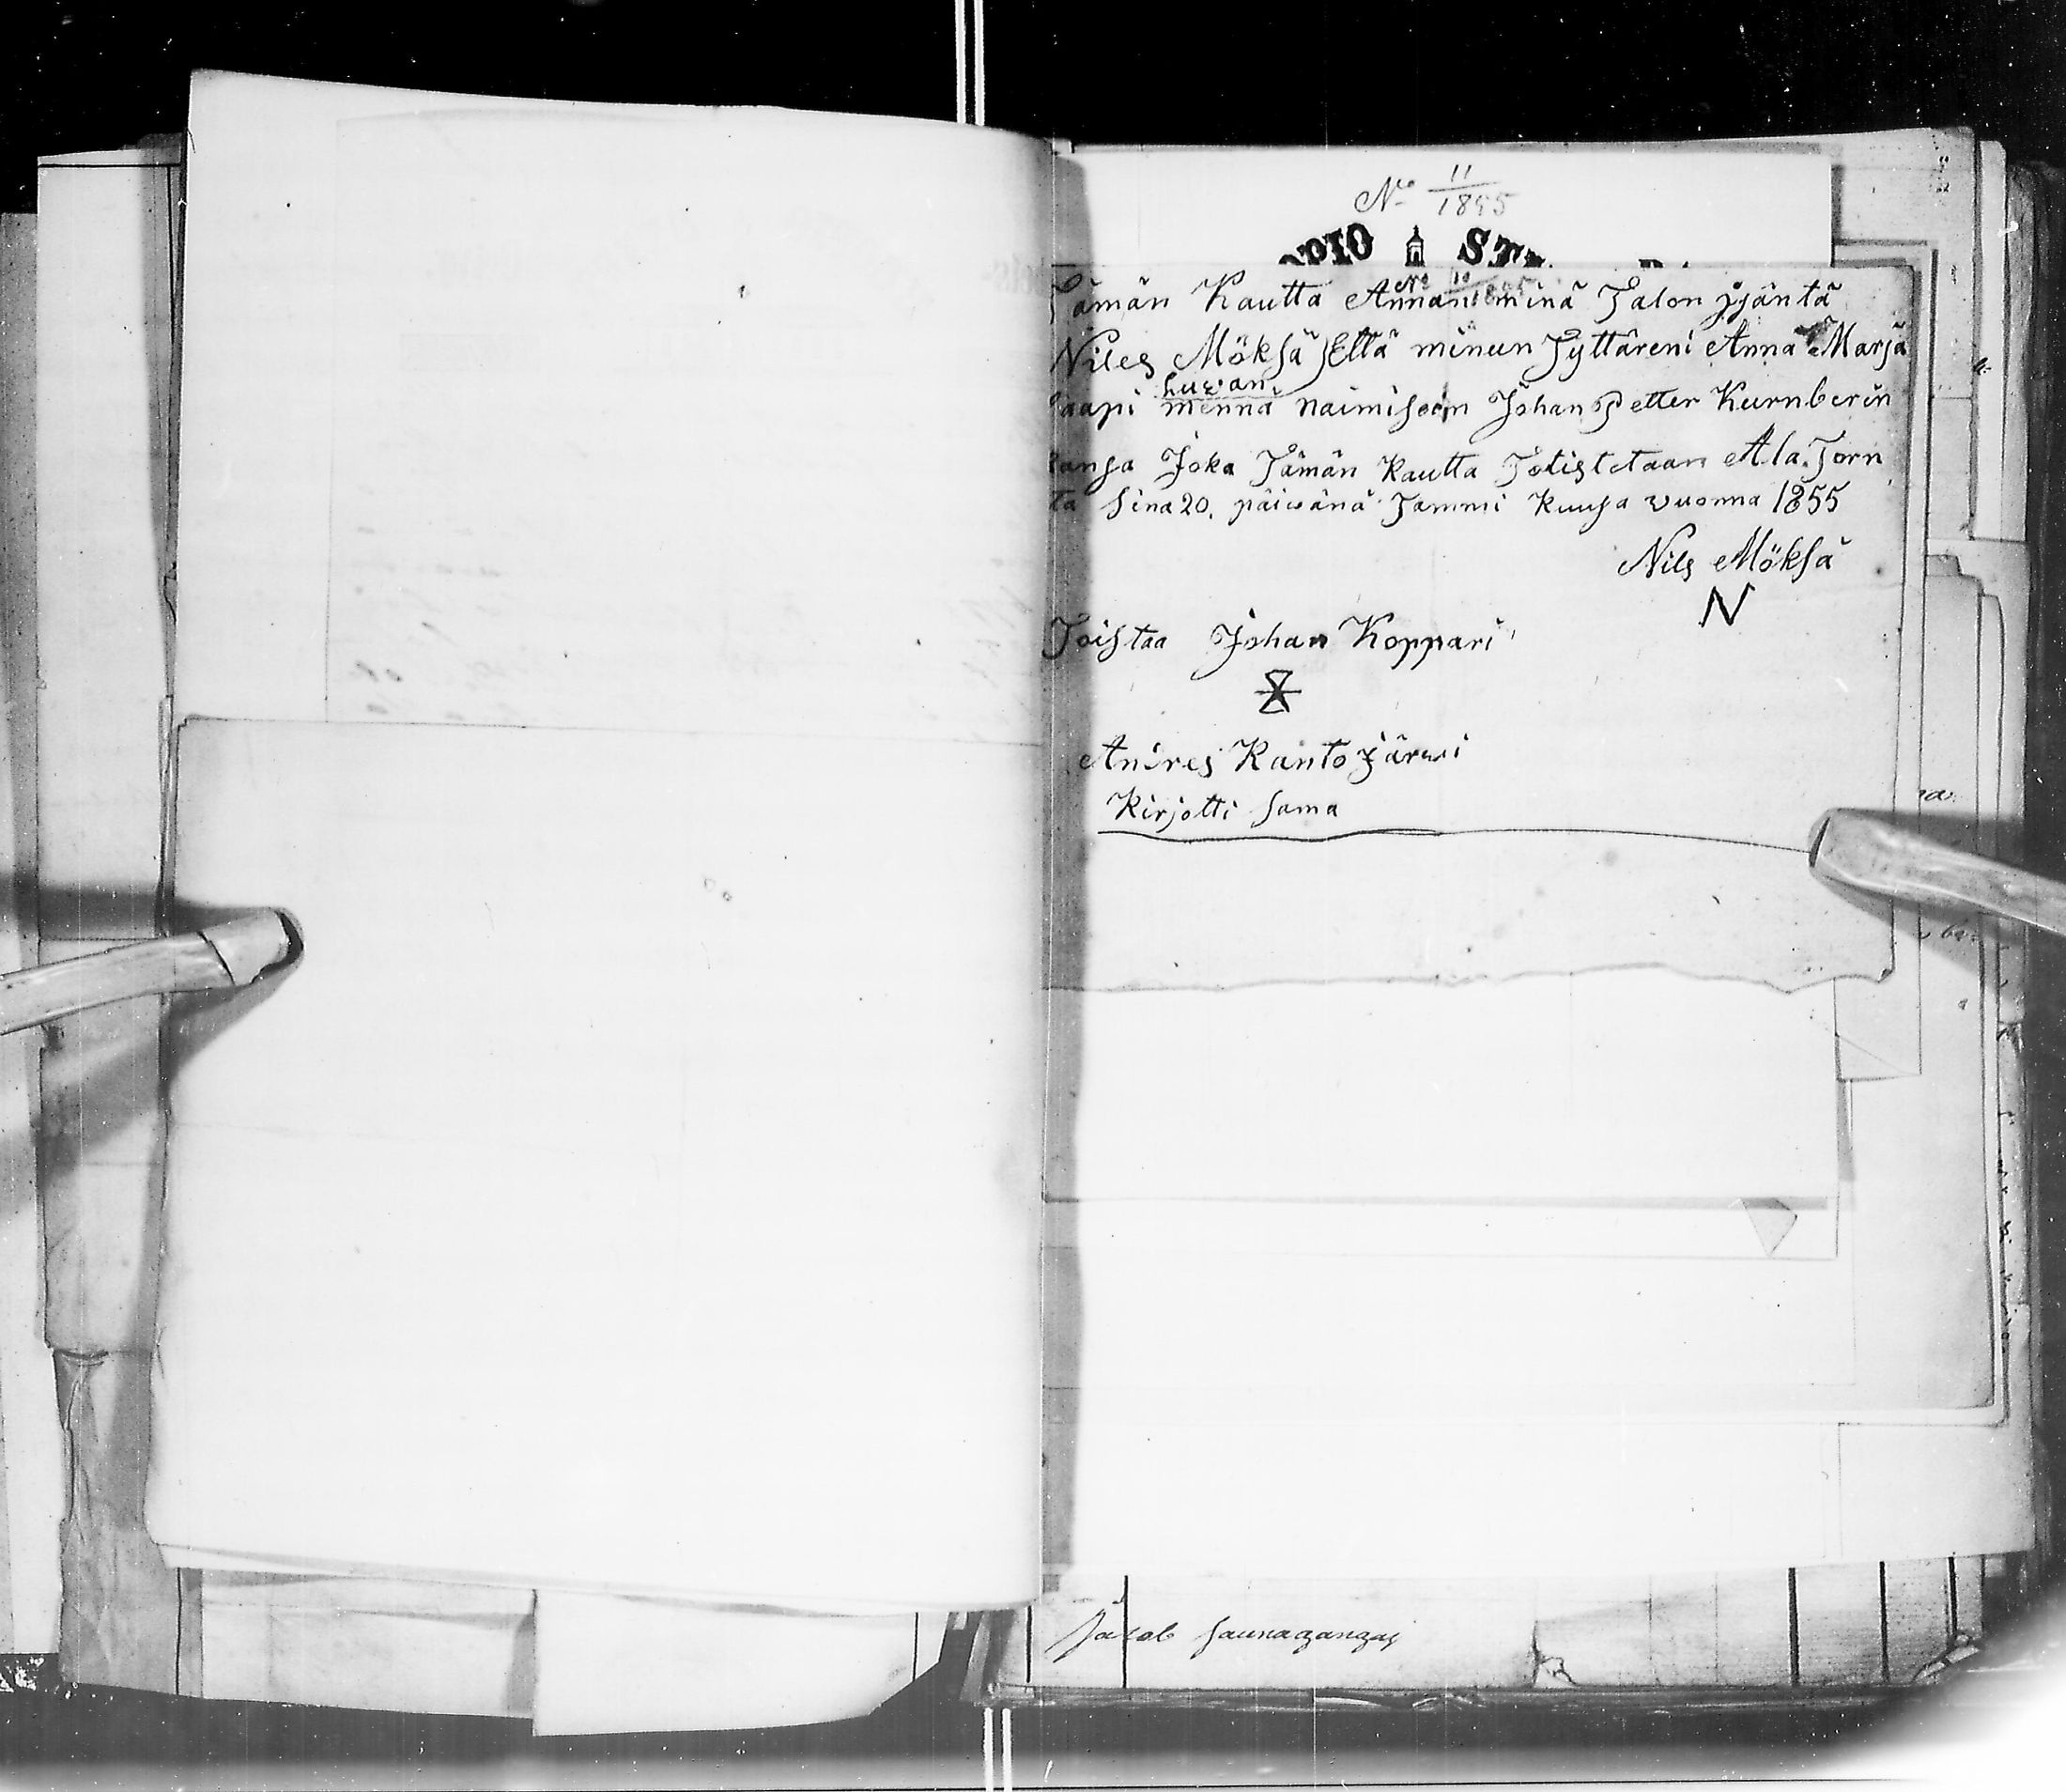 No 11/1855
OPIO ST
No 10/1855
Tämän Kautta Annan minä Talon jsäntä
Niles Möksä Että minun Tyttäreni Anna Marja
Luwan
saapi mennä naimiseen Johan Petter Kurnberin
kansa Joka Tämän Kautta Totistetaan Ala.Torn
ta Sina 20. päiwänä Tammi Kuusa vuonna 1855
Nils Möksä
N
Toistaa Johan Koppari
Anires Kantojärwi
Kirjotti Sama
Jacob Saunagangas